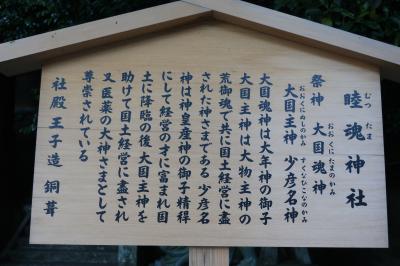 睦魂神社
むつたま
祭神 大国魂神
おおくにたまのかみ
大国主神 少彦名神
おおくにぬしのかみ すくなひこなのかみ
大国魂神は大年神の御子
大国主神は大物主神の
荒御魂で共に国土経営に盡
された神さまである 少彦名
神は神皇産神の御子 精得
にして経営の才に富まれ国
土に降臨の後 大国主神を
助けて国土経営に盡され
又医薬の大神さまとして
尊崇されている
社殿 王子造 銅葺